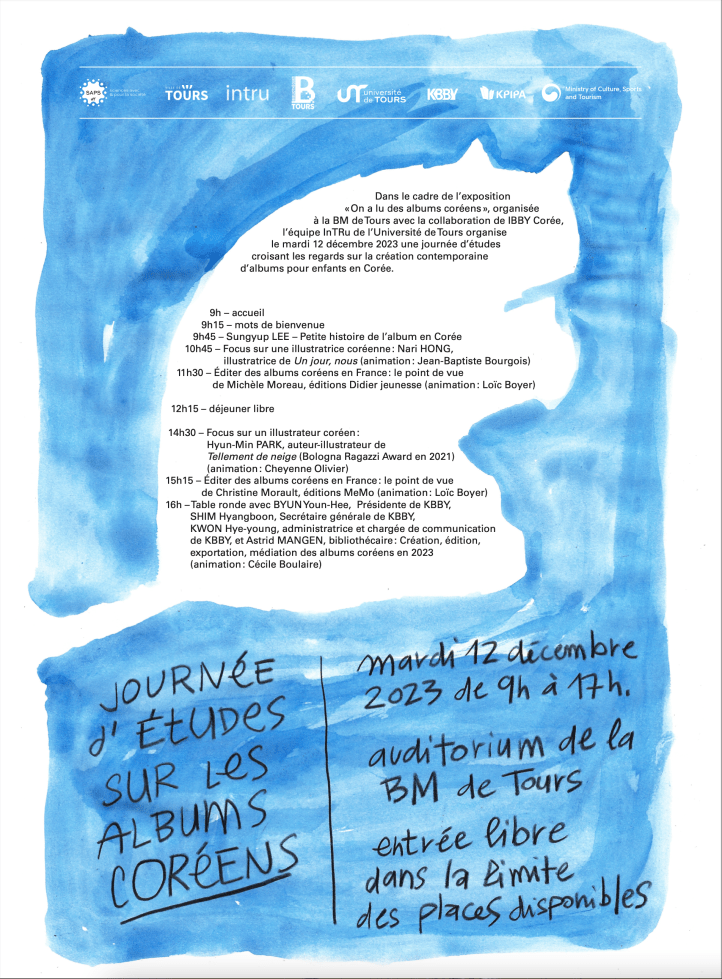 SAPS
TOURS
intru
B
TOURS
UT université
de TOURS
KBBY
KPIPA
Ministry of Culture, Sports
and Tourism
Dans le cadre de l'exposition
« On a lu des albums coréens », organisée
à la BM de Tours avec la collaboration de IBBY Corée,
l'équipe InTRu de l'Université de Tours organise
le mardi 12 décembre 2023 une journée d'études
croisant les regards sur la création contemporaine
d'albums pour enfants en Corée.
9h – accueil
9h15 – mots de bienvenue
9h45 – Sungyup LEE – Petite histoire de l'album en Corée
10h45 – Focus sur une illustratrice coréenne : Nari HONG,
illustratrice de Un jour, nous (animation : Jean-Baptiste Bourgois)
11h30 – Éditer des albums coréens en France : le point de vue
de Michèle Moreau, éditions Didier jeunesse (animation : Loïc Boyer)
12h15 – déjeuner libre
14h30 – Focus sur un illustrateur coréen :
Hyun-Min PARK, auteur-illustrateur de
Tellement de neige (Bologna Ragazzi Award en 2021)
(animation : Cheyenne Olivier)
15h15 – Éditer des albums coréens en France : le point de vue
de Christine Morault, éditions MeMo (animation : Loïc Boyer)
16h – Table ronde avec BYUN Youn-Hee, Présidente de KBBY,
SHIM Hyangboon, Secrétaire générale de KBBY,
KWON Hye-young, administratrice et chargée de communication
de KBBY, et Astrid MANGEN, bibliothécaire : Création, édition,
exportation, médiation des albums coréens en 2023
(animation : Cécile Boulaire)
JOURNÉE
d'ÉTUDES
SUR LES
ALBUMS
CORÉENS
mardi 12 décembre
2023 de 9h à 17h.
auditorium de la
BM de Tours
entrée libre
dans la limite
des places disponibles